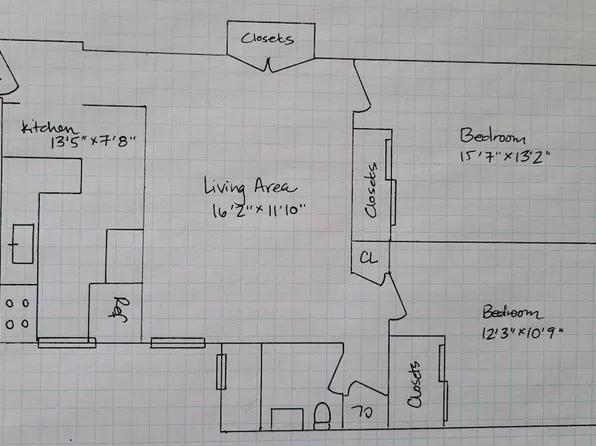 Closets
Kitchen
13'5" x 7'8"
Bedroom
15'7" x 13'2"
Closets
Living Area
16'2" x 11'10"
CL
Ref
Bedroom
12'3" x 10'9"
Closets
CL